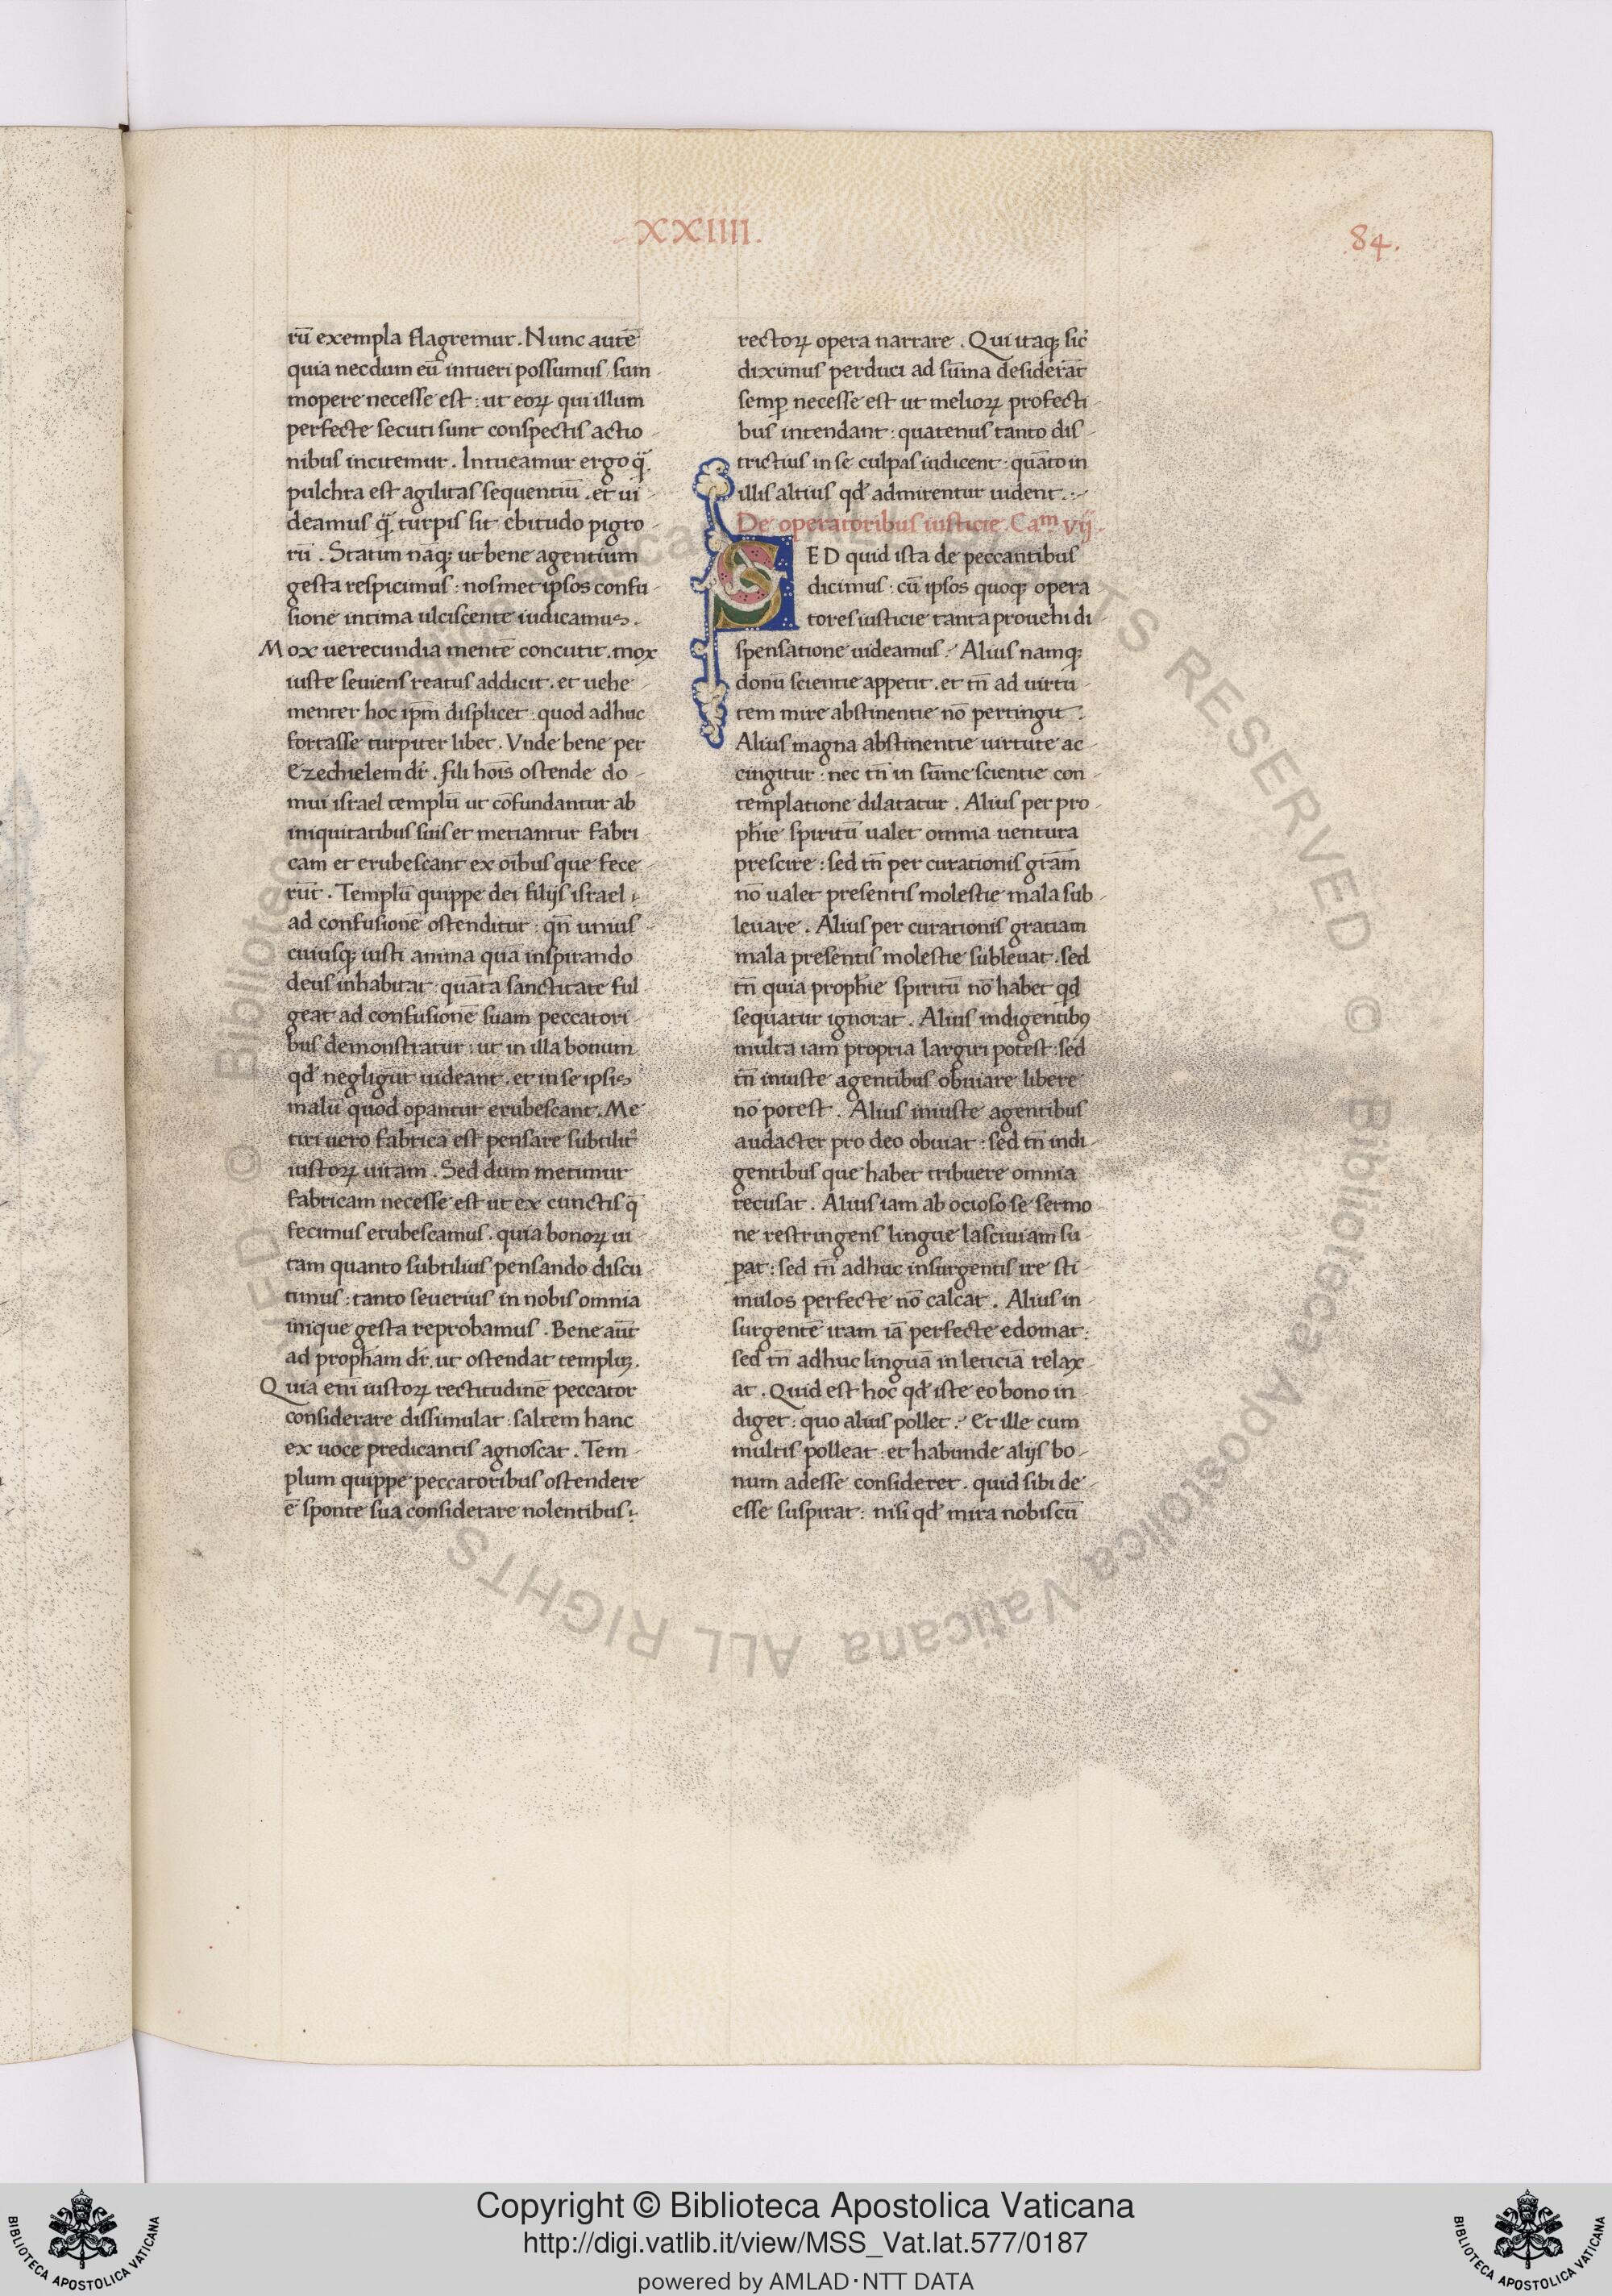 XXIIII.
84.
rū exempla flagremur. Nunc autē
quia necdum eū intueri possumus sum-
mopere necesse est: ut eoꝝ qui illum
perfecte secuti sunt conspectis actio-
nibus incitemur. Intueamur ergo q̄
pulchra est agilitas sequentiū. et ui-
deamus q̄ turpis sit ebitudo pigro-
rū. Statim nāqꝫ ut bene agentium
gesta respicimus: nosmet ipsos confu-
sione intima ulciscente iudicamus.
Mox uerecundia mentē concutit. mox
iuste seuiens reatus addicit. et uehe-
menter hoc ip̄m displicet: quod adhuc
fortasse turpiter libet. Vnde bene per
Ezechielem dr̄. fili hoīs ostende do-
mui israel templū ut cōfundantur ab
iniquitatibus suis et metiantur fabri-
cam et erubescant ex oībus que fece-
rūt. Templū quippe dei filijs israel
ad confusionē ostenditur: qn̄ unius
cuiusqꝫ iusti anima quā inspirando
deus inhabitat: quāta sanctitate ful-
geat ad confusionē suam peccatori-
bus demonstratur: ut in illa bonum
qd̄ negligūt uideant. et in se ipsis
malū quod opantur erubescant. Me-
tiri uero fabricā est pensare subtilit̄
iustoꝝ uitam. Sed dum metimur
fabricam necesse est ut ex cunctis q̄
fecimus erubescamus. quia bonoꝝ ui-
tam quanto subtilius pensando discu-
timus: tanto seuerius in nobis omnia
inique gesta reprobamus. Bene aūt
ad prophām dr̄. ut ostendat templuꝫ.
Quia enī iustoꝝ rectitudinē peccator
considerare dissimulat: saltem hanc
ex uoce predicantis agnoscat. Tem-
plum quippe peccatoribus ostendere
ē sponte sua considerare nolentibus:
rectoꝝ opera narrare. Qui itaqꝫ sic̄
diximus perduci ad sūma desiderāt
semꝑ necesse est ut melioꝝ profecti-
bus intendant: quatenus tanto dis-
trictius in se culpas iudicent: quāto in
illis altius qd̄ admirentur uident.
De operatoribus iusticie. Caᵐ vij.
SED quid ista de peccantibus
dicimus: cū ipsos quoqꝫ opera
tores iusticie tanta prouehi di-
spensatione uideamus. Alius namqꝫ
donū scientie appetit. et tn̄ ad uirtu-
tem mire abstinentie nō pertingit.
Alius magna abstinentie uirtute ac-
cingitur: nec tn̄ in sūme scientie con-
templatione dilatatur. Alius per pro-
phīe spiritū ualet omnia uentura
prescire: sed tn̄ per curationis grām
nō ualet presentis molestie mala sub-
leuare. Alius per curationis gratiam
mala presentis molestie subleuat. sed
tn̄ quia prophīe spiritū nō habet qd̄
sequatur ignorat. Alius indigentibꝯ
multa iam propria largiri potest: sed
tn̄ iniuste agentibus obuiare libere
nō potest. Alius iniuste agentibus
audacter pro deo obuiat: sed tn̄ indi-
gentibus que habet tribuere omnia
recusat. Alius iam ab ocioso se sermo-
ne restringens lingue lasciuiam su-
pat: sed tn̄ adhuc insurgentis ire sti-
mulos perfecte nō calcat. Alius in-
surgentē iram iā perfecte edomat:
sed tn̄ adhuc linguā in leticiā relax-
at. Quid est hoc qd̄ iste eo bono in-
diget: quo alius pollet. Et ille cum
multis polleat: et habunde alijs bo-
num adesse consideret. quid sibi de-
esse suspirat: nisi qd̄ mira nobiscū
© Biblioteca Apostolica Vaticana ALL RIGHTS RESERVED
© Biblioteca Apostolica Vaticana ALL RIGHTS RESERVED
Copyright © Biblioteca Apostolica Vaticana
http://digi.vatlib.it/view/MSS_Vat.lat.577/0187
powered by AMLAD·NTT DATA
BIBLIOTECA APOSTOLICA VATICANA
BIBLIOTECA APOSTOLICA VATICANA